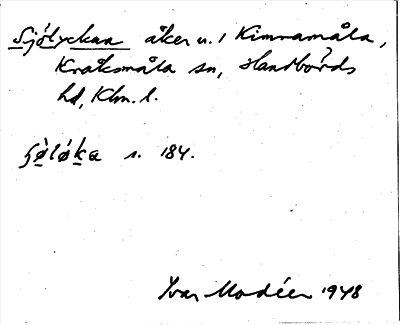 Sjölyckan åker u. 1 Kimramåla,
Kråksmåla sn, Handbörds
hd, Klm. l.
s. 184.
Ivar Modéer 1948